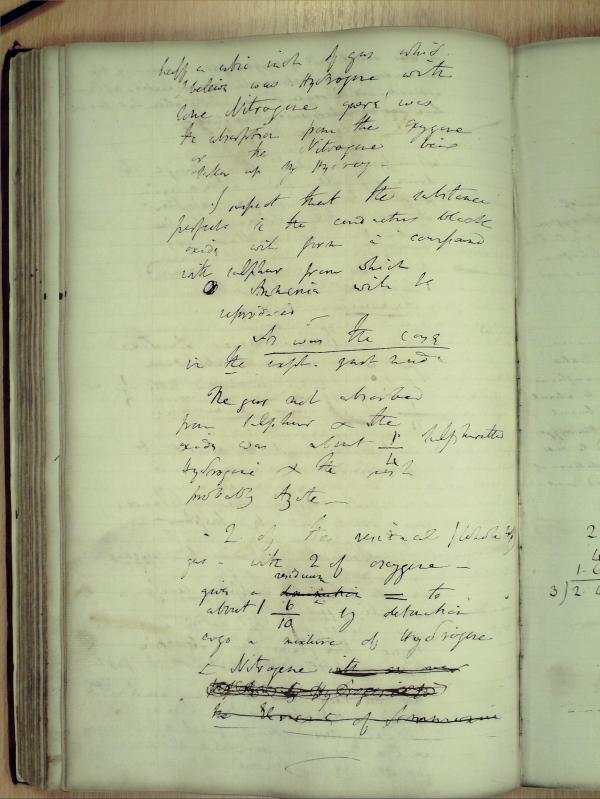 half a cubic inch of gas which
I believe was Hydrogene with
some Nitrogene quere was
the absorption from the oxygene
or the Nitrogene being
taken up by Hydrog -
I suspect that the substance
perfects in the conducting black
oxide will form a compound
with sulphur from which
Ammonia will be
reproduced
As was the case
in the expt. just made.
The gas not absorbed
from sulphur & the
oxide was about 1/4 sulphuretted
Hydrogene & the rest
probably Azote -
- 2 of the residual
gas - with 2 of oxygene -
residuum
gives a diminution = to
about 1 6/10 by detonation
ergo a mixture of Hydrogene
& Nitrogene
the Element of Ammonia
2
1.6
3)2.